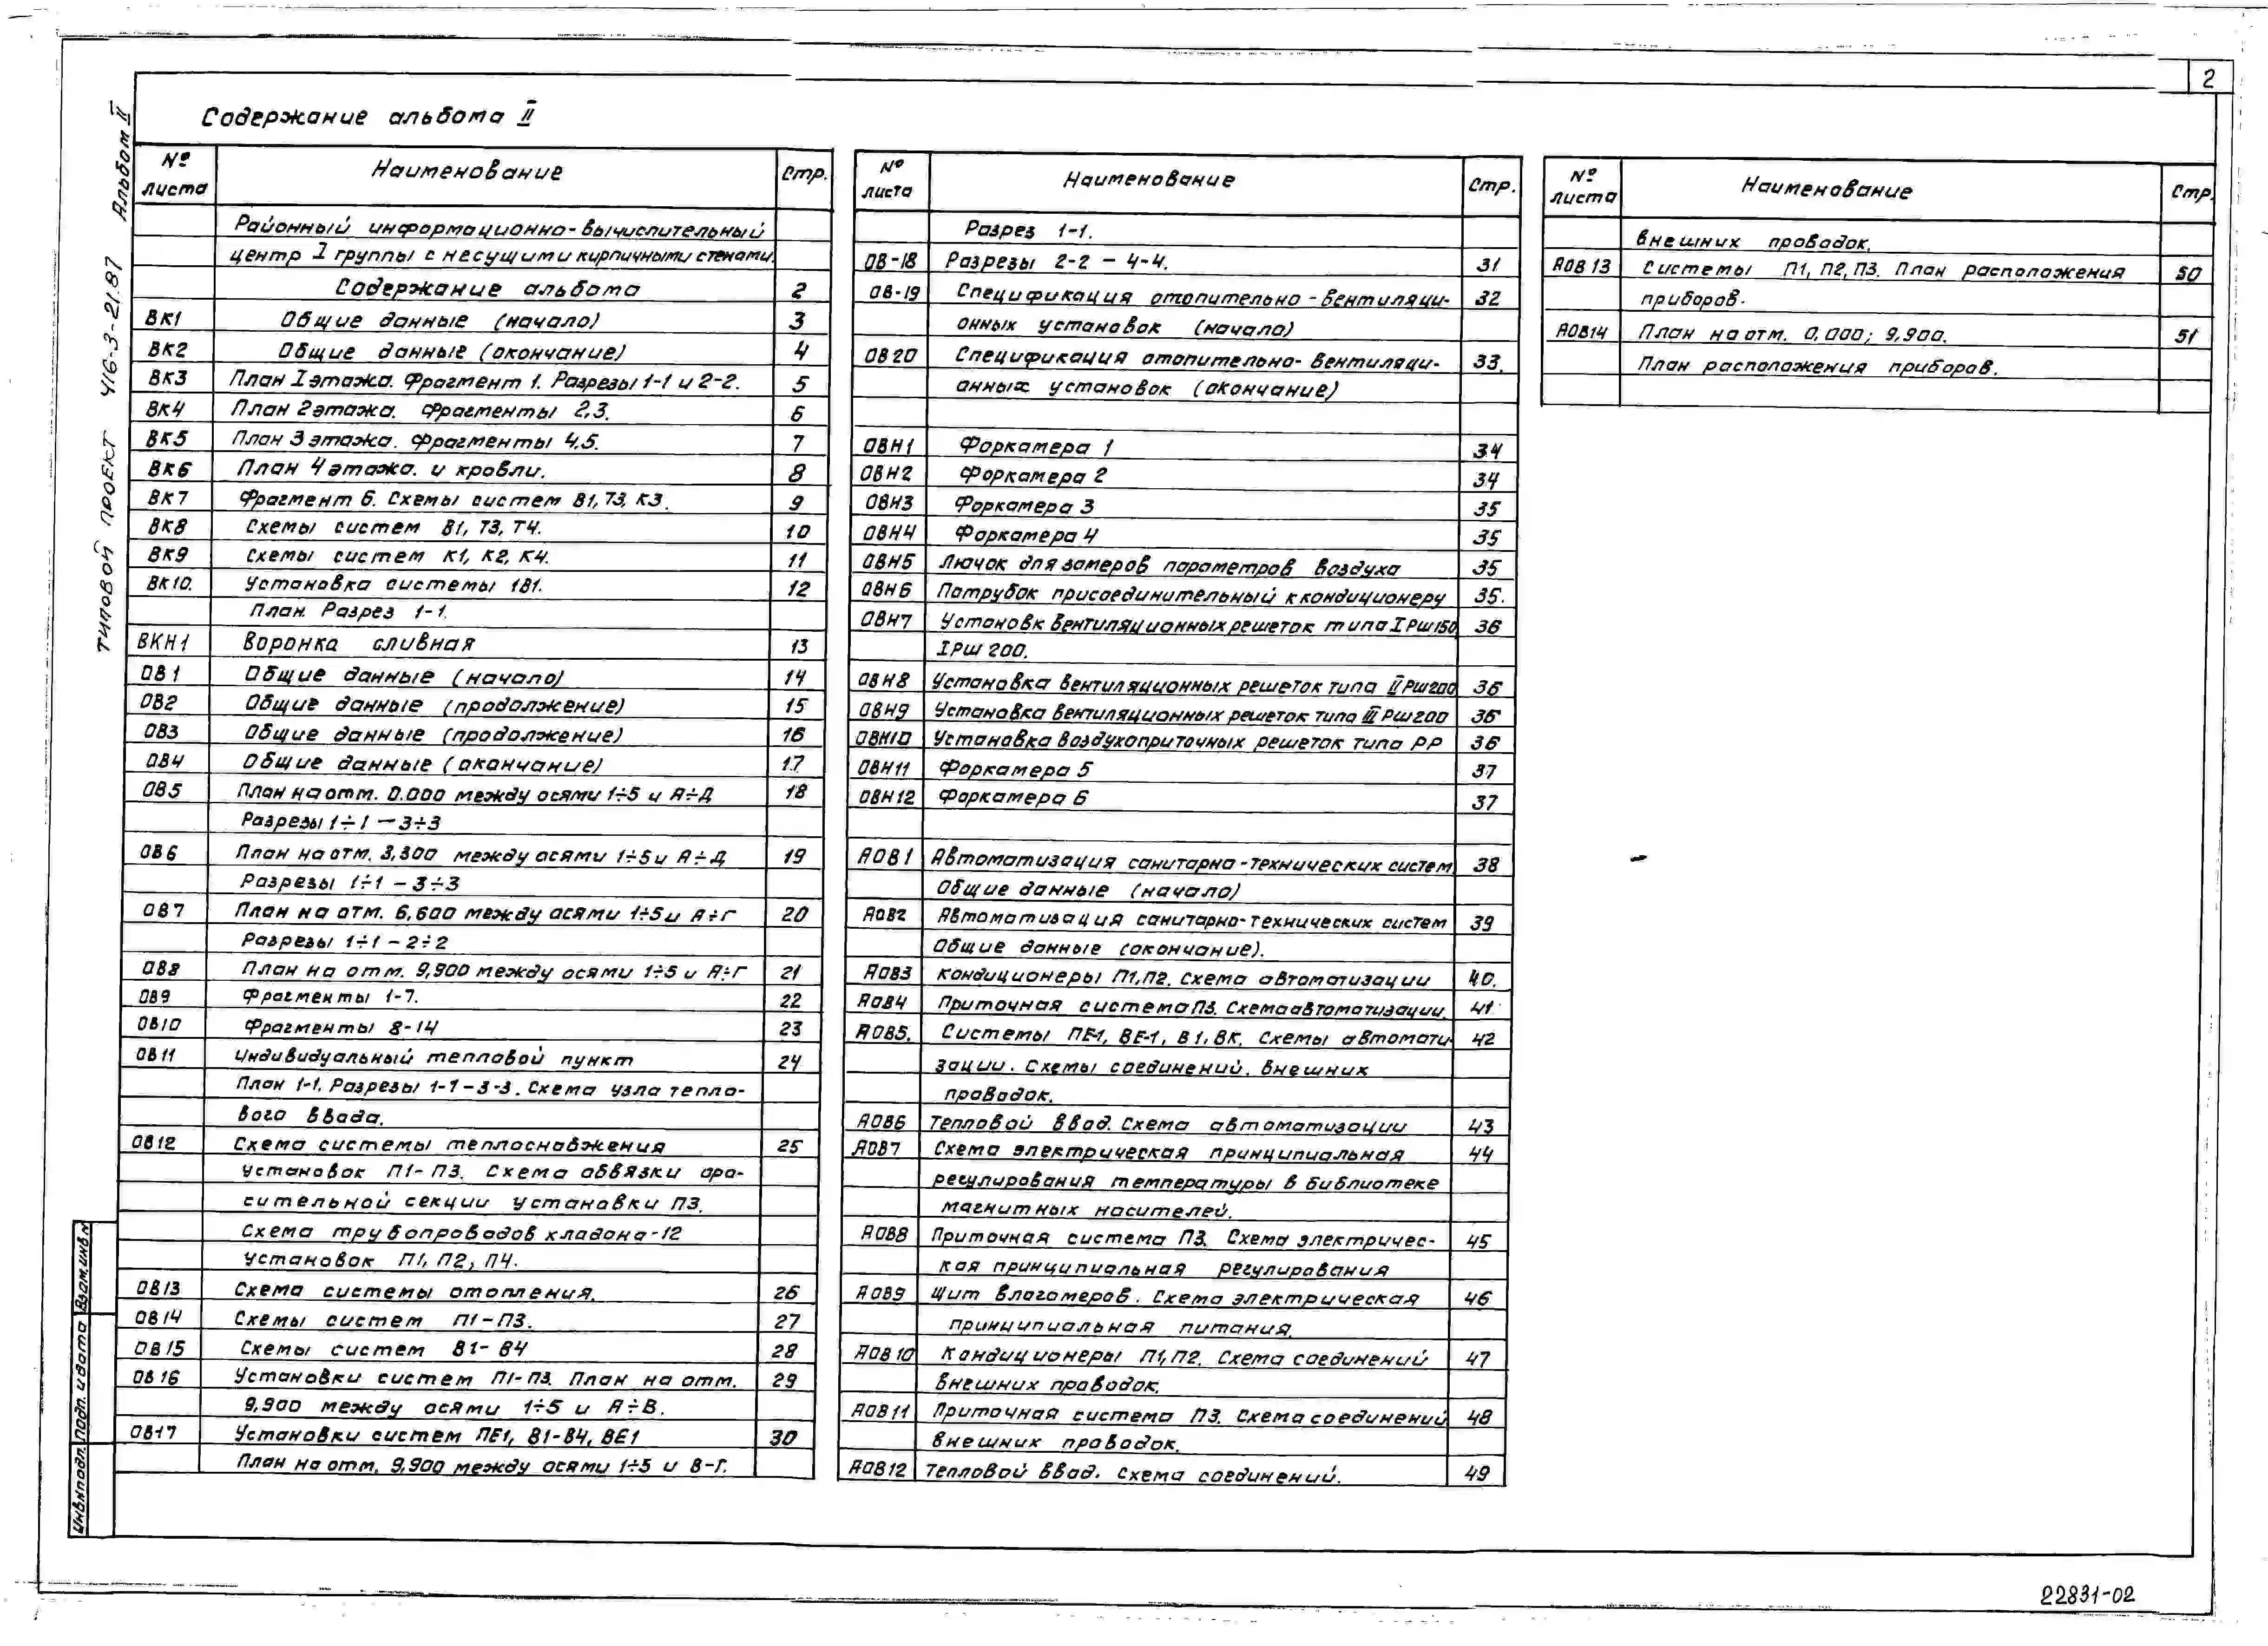 2
Содержание альбома II
Альбом II
ТИПОВОЙ ПРОЕКТ 416-3-21.87
№ листа Наименование Стр.
Районный информационно-вычислительный
центр I группы с несущими кирпичными стенами.
Содержание альбома 2
ВК1 Общие данные (начало) 3
ВК2 Общие данные (окончание) 4
ВК3 План I этажа. Фрагмент 1. Разрезы 1-1 и 2-2. 5
ВК4 План 2 этажа. Фрагменты 2,3. 6
ВК5 План 3 этажа. Фрагменты 4,5. 7
ВК6 План 4 этажа. и кровли. 8
ВК7 Фрагмент 6. Схемы систем В1, Т3, К3. 9
ВК8 Схемы систем В1, Т3, Т4. 10
ВК9 Схемы систем К1, К2, К4. 11
ВК10. Установка системы 1В1. 12
План. Разрез 1-1.
ВКН1 Воронка сливная 13
ОВ1 Общие данные (начало) 14
ОВ2 Общие данные (продолжение) 15
ОВ3 Общие данные (продолжение) 16
ОВ4 Общие данные (окончание) 17
ОВ5 План на отм. 0.000 между осями 1÷5 и А÷Д 18
Разрезы 1÷1 — 3÷3
ОВ6 План на отм. 3,300 между осями 1÷5 и А÷Д 19
Разрезы 1÷1 - 3÷3
ОВ7 План на отм. 6,600 между осями 1÷5 и А÷Г 20
Разрезы 1÷1 - 2÷2
ОВ8 План на отм. 9,900 между осями 1÷5 и А÷Г 21
ОВ9 Фрагменты 1-7. 22
ОВ10 Фрагменты 8-14 23
ОВ11 Индивидуальный тепловой пункт 24
План 1-1. Разрезы 1-1 - 3-3. Схема узла тепло-
вого ввода.
ОВ12 Схема системы теплоснабжения 25
установок П1-П3. Схема обвязки оро-
сительной секции установки П3.
Схема трубопроводов хладона-12
установок П1, П2, П4.
ОВ13 Схема системы отопления. 26
ОВ14 Схемы систем П1-П3. 27
ОВ15 Схемы систем В1-В4 28
ОВ16 Установки систем П1-П3. План на отм. 29
9,900 между осями 1÷5 и А÷В.
ОВ17 Установки систем ПЕ1, В1-В4, ВЕ1 30
План на отм. 9,900 между осями 1÷5 и В-Г.
№ листа Наименование Стр.
Разрез 1-1.
ОВ-18 Разрезы 2-2 - 4-4. 31
ОВ-19 Спецификация отопительно-вентиляци- 32
онных установок (начало)
ОВ20 Спецификация отопительно-вентиляци- 33.
онных установок (окончание)
ОВН1 Форкамера 1 34
ОВН2 Форкамера 2 34
ОВН3 Форкамера 3 35
ОВН4 Форкамера 4 35
ОВН5 Лючок для замеров параметров воздуха 35
ОВН6 Патрубок присоединительный к кондиционеру 35.
ОВН7 Установк вентиляционных решеток типа I РШ150 36
I РШ 200.
ОВН8 Установка вентиляционных решеток типа II РШ200 36
ОВН9 Установка вентиляционных решеток типа III РШ200 36
ОВН10 Установка воздухоприточных решеток типа РР 36
ОВН11 Форкамера 5 37
ОВН12 Форкамера 6 37
АОВ1 Автоматизация санитарно-технических систем 38
Общие данные (начало)
АОВ2 Автоматизация санитарно-технических систем 39
Общие данные (окончание).
АОВ3 Кондиционеры П1, П2. Схема автоматизации 40.
АОВ4 Приточная система П3. Схема автоматизации. 41
АОВ5. Системы ПЕ-1, ВЕ-1, В1, ВК. Схемы автомати- 42
зации. Схемы соединений. внешних
проводок.
АОВ6 Тепловой ввод. Схема автоматизации 43
АОВ7 Схема электрическая принципиальная 44
регулирования температуры в библиотеке
магнитных носителей.
АОВ8 Приточная система П3. Схема электричес- 45
кая принципиальная регулирования
АОВ9 Щит влагомеров. Схема электрическая 46
принципиальная питания.
АОВ10 Кондиционеры П1, П2. Схема соединений 47
внешних проводок.
АОВ11 Приточная система П3. Схема соединений 48
внешних проводок.
АОВ12 Тепловой ввод. Схема соединений. 49
№ листа Наименование Стр.
внешних проводок.
АОВ13 Системы П1, П2, П3. План расположения 50
приборов.
АОВ14 План на отм. 0,000; 9,900. 51
План расположения приборов.
Взам.инв.№
Подп. и дата
Инв.№подл.
22831-02